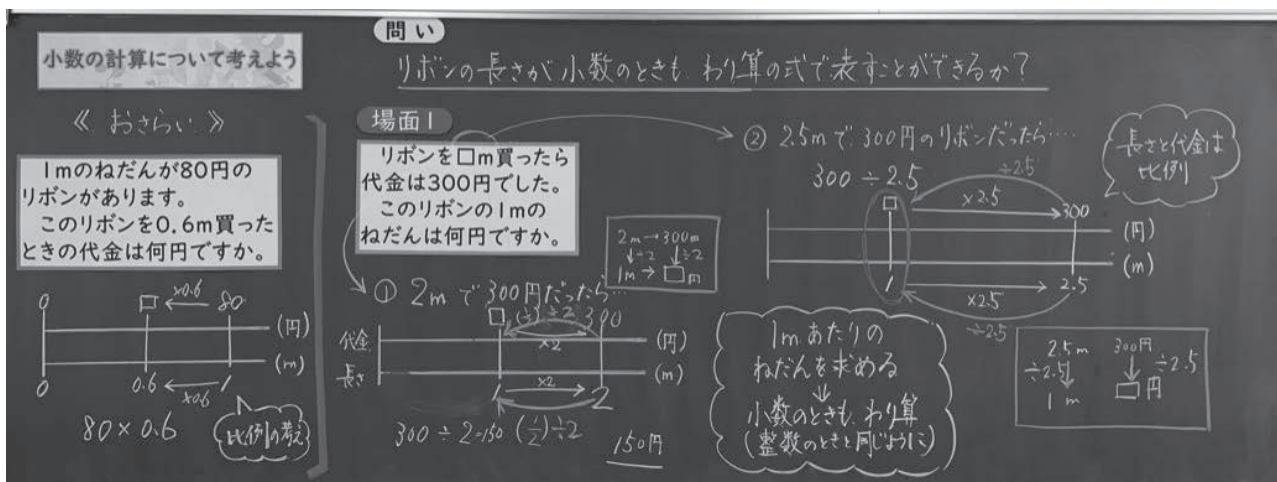 小数の計算について考えよう
《おさらい》
1mのねだんが80円の
リボンがあります。
このリボンを0.6m買った
ときの代金は何円ですか。
0 □ ×0.6 80
(円)
(m)
0 0.6 ×0.6 1
80×0.6
比例の考え
問い
リボンの長さが小数のときも、わり算の式で表すことができるか?
場面1
リボンを□m買ったら
代金は300円でした。
このリボンの1mの
ねだんは何円ですか。
① 2mで300円だったら…
2m→300m
↓÷2 ↓÷2
1m→□円
□ (½) ÷2 300
×2
代金 (円)
長さ (m)
×2
1 2
300÷2=150 (½)÷2
150円
② 2.5mで300円のリボンだったら……
300÷2.5
÷2.5
□ ×2.5 300
(円)
(m)
1 ×2.5 2.5
÷2.5
長さと代金は
比例
1mあたりの
ねだんを求める
⇓
小数のときも、わり算
(整数のときと同じように)
2.5m 300円
÷2.5↓ ↓÷2.5
1m □円